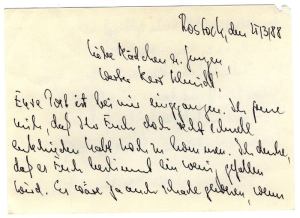 Rostock, den 11/3/88
Liebe Mädchen u. Jungen,
werter Herr Schmidt!
Eure Post ist bei mir eingegangen. Ich freue
mich, daß Ihr Euch doch recht schnell
entschieden habt noch zu kommen. Ich denke,
daß es Euch bestimmt ein wenig gefallen
wird. Es wäre ja auch schade gewesen, wenn